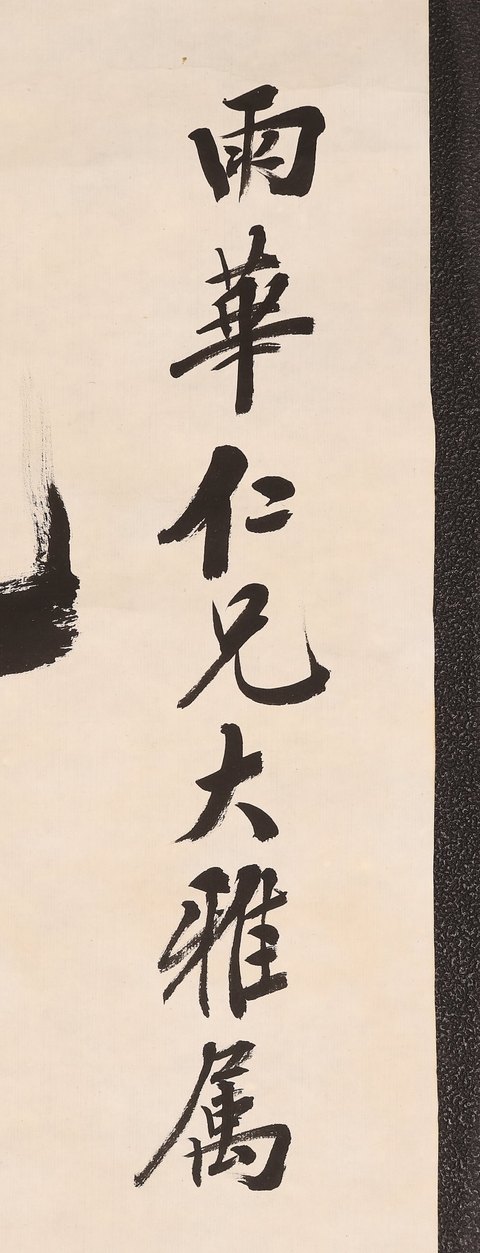 雨華仁兄大雅属